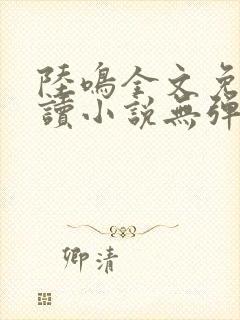 陸鳴全文免
讀小說無彈
卿清